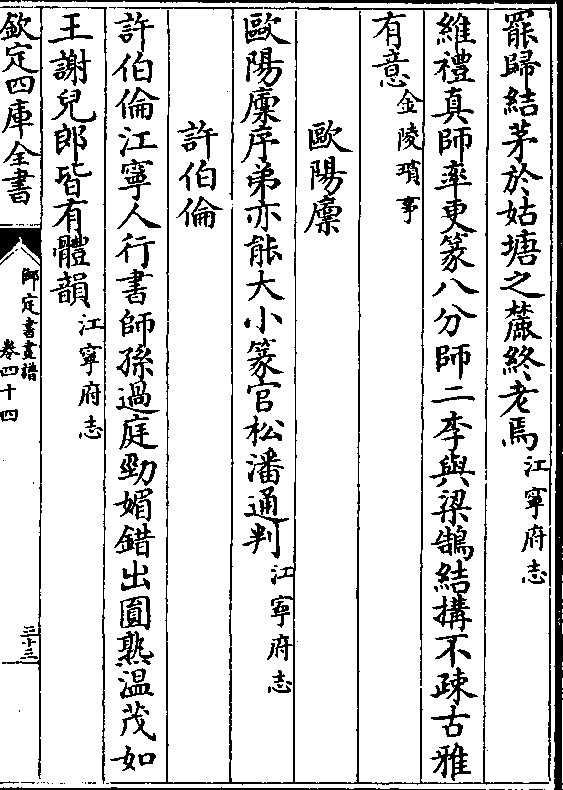 罷歸結茅於姑塘之麓終老焉江寧府志
維禮真師率更篆八分師二李與梁鵠結搆不疎古雅
有意金陵瑣事
歐陽廩
歐陽廩序弟亦能大小篆官松潘通判江寧府志
許伯倫
許伯倫江寧人行書師孫過庭勁媚錯出圓熟温茂如
王謝兒郎皆有體韻江寧府志
欽定四庫全書
御定書畫譜
卷四十四
三十三